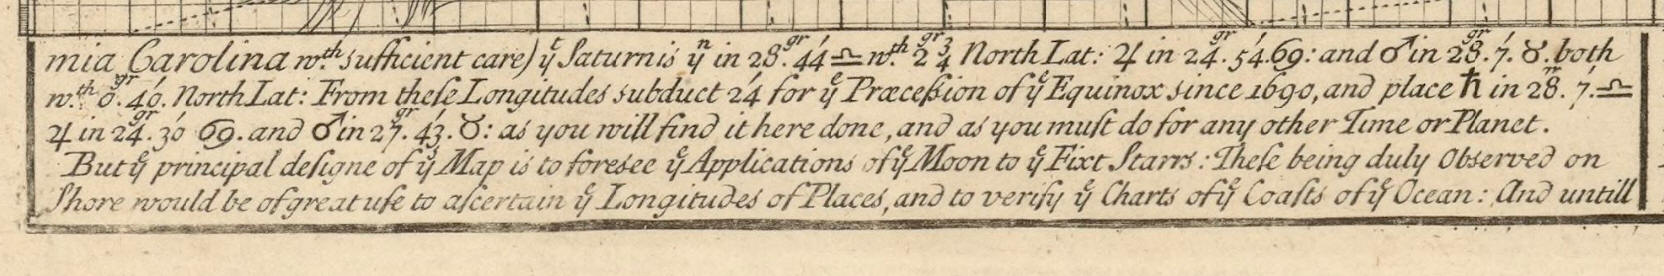 mia Carolina wᵗʰ sufficient care) yᵉ Saturn is yⁿ in 28.ᵍʳ 44′ ♎ wᵗʰ 2ᵍʳ ¾ North Lat: ♃ in 24.ᵍʳ 54′. ♋: and ♂ in 28.ᵍʳ 7′. ♉. both
w.ᵗʰ 0.ᵍʳ 40′. North Lat: From theſe Longitudes subduct 24′ for yᵉ Præceſsion of yᵉ Equinox since 1690, and place ♄ in 28.ᵍʳ 7′. ♎
♃ in 24.ᵍʳ 30′ ♋. and ♂ in 27.ᵍʳ 43′. ♉: as you will find it here done, and as you muſt do for any other Time or Planet.
But yᵉ principal deſigne of yˢ Map is to foresee yᵉ Applications of yᵉ Moon to yᵉ Fixt Starrs: Theſe being duly Observed on
Shore would be of great uſe to aſcertain yᵉ Longitudes of Places, and to verify yᵉ Charts of yᵉ Coaſts of yᵉ Ocean: And untill